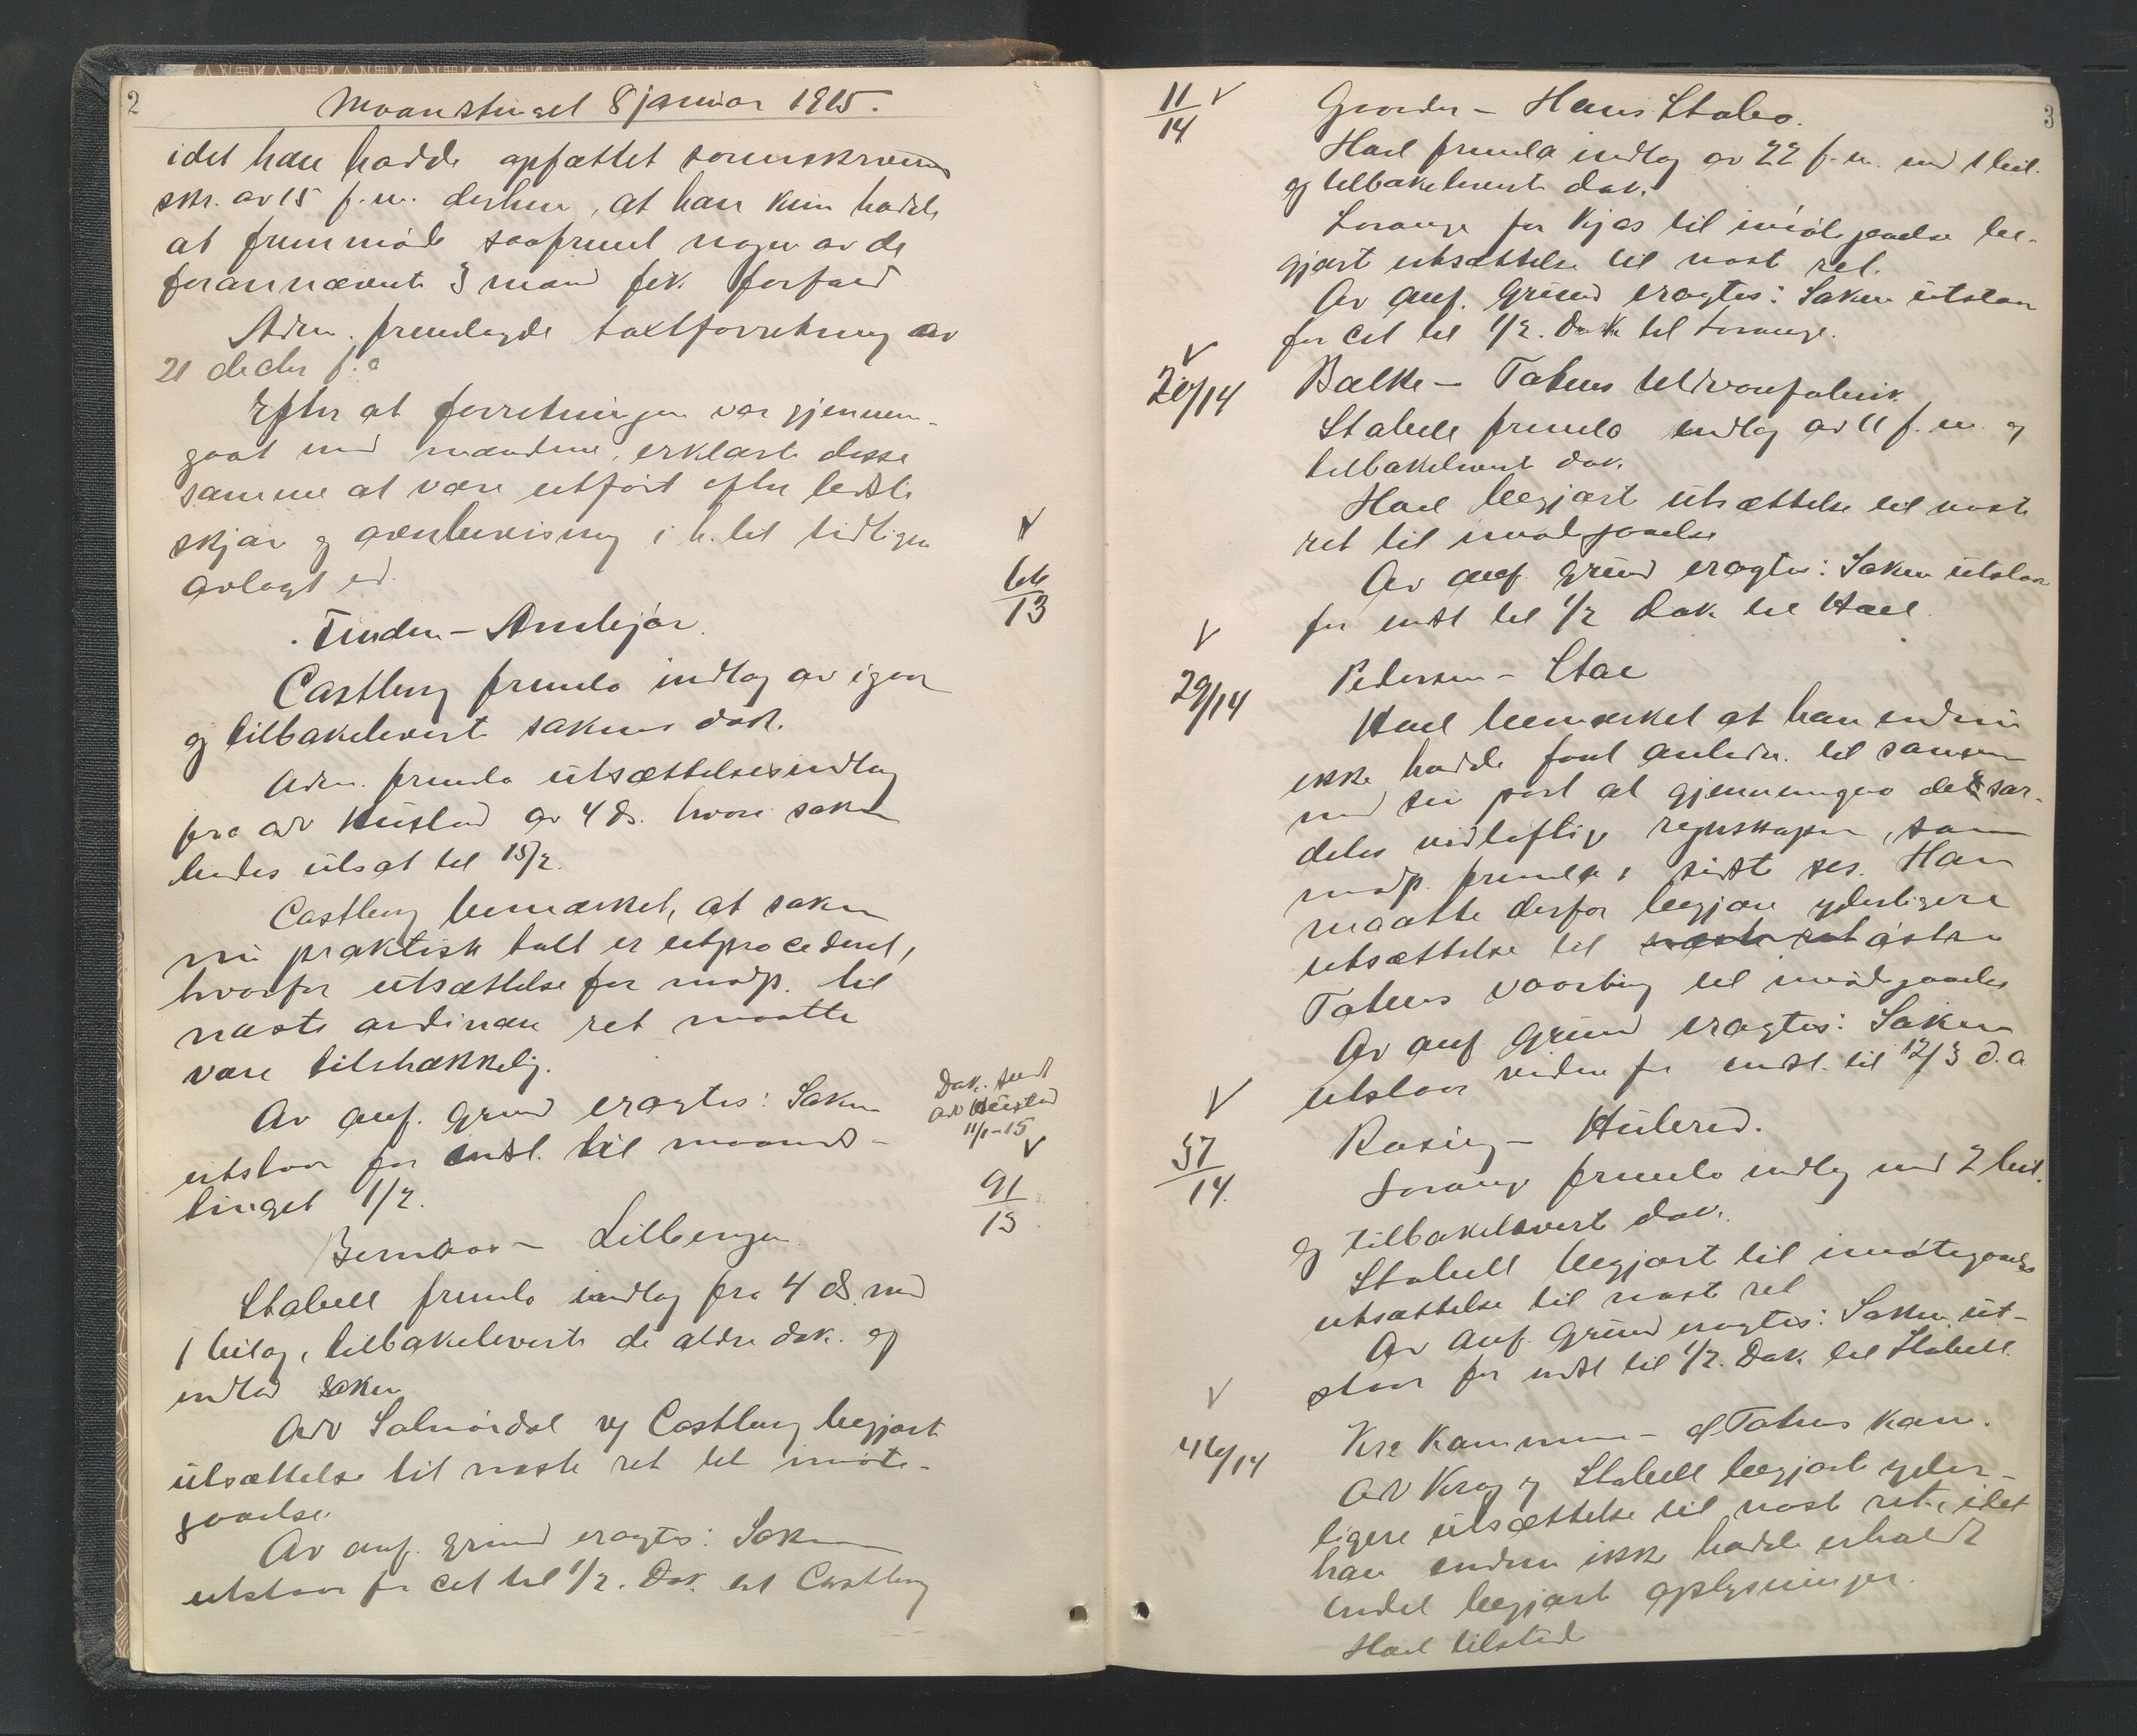 2
Maanstinget 8 januar 1915.
idet han hadde opfattet sorenskriverens
skr. av 15 f.m. derhen, at han kun hadde
at fremmøde saafremt nogen av de
forannævnte 3 mænd fik forfald
Adm. fremlagde takstforretning av
21 decbr f.a
Efter at forretningen var gjennem-
gaat med mændene, erklærte disse
samme at være utført efter bedste
skjøn og overbevisning i h. til tidligere
avlagt ed.
66
13
Tinden - Arnebjør
Castberg fremla indlæg av igaar
og tilbakeleverte sakens dok.
Adm. fremla utsættelsesindlæg
fra adv Heistad av 4 ds. hvori saken
bedes utsat til 15/2.
Castberg bemerket, at saken
nu praktisk talt er utprocedert,
hvorfor utsættelse for modp. til
næste ordinære ret maatte
være tilstrækkelig.
Av anf. grund eragtes: Saken
utstaar for indst. til maaneds-
tinget 1/2.
Dok. sendt
adv Heistad
11/1-15
91
13
Lilleengen
Stabell fremla indlæg fra 4 ds. med
1 bilag, tilbakeleverte de ældre dok. og
indlod saken
Adv Solnørdal vg Castberg begjærte
utsættelse til næste ret til imøte-
gaaelse.
Av anf. grund eragtes: Saken
utstaar for cit til 1/2. Dok til Castberg
3
11
14
Grorder - Hans Stabo.
Hoel fremla indlæg av 22 f.m. med 1 bil.
og tilbakeleverte dok.
Lorange for Kjøs til imøtegaaelse be-
gjært utsættelse til næst ret.
Av anf. grund eragtes: Saken utstaar
for cit til 1/2. Dok til Lorange.
20/14
Balke - Totens Uldvarefabrik
Stabell fremla indlæg av 11 f.m. og
tilbakeleverte dok.
Hoel begjært utsættelse til næste
ret til imøtegaaelse
Av anf. grund eragtes: Saken utstaar
for indst til 1/2 Dok til Hoel.
29/14
Pedersen - Stae
Hoel bemerket at han endnu
ikke hadde faat anledn. til sammen
med sin part at gjennemgaa det sær-
deles vidløftige regnskaper, som
modp. fremla i sidste ses. Han
maatte derfor begjære yderligere
utsættelse til næste ret østre
Totens vaarting til imødegaaelse
Av anf. grund eragtes: Saken
utstaar videre for indst. til 12/3 d.a
37
14.
Rosing - Hulered.
Lorange fremla indlæg med 2 bil.
og tilbakelevert dok.
Stabell begjært til imøtegaaelse
utsættelse til næst ret
Av anf. grund eragtes: Saken ut-
staar for indst til 1/2. Dok til Stabell.
46/14
Kra Kommune - Ø Totens Kom.
Adv Krag vg Stabell begjært yder-
ligere utsættelse til næst ret, idet
han endnu ikke hadde erholdt
endel begjært oplysninger.
Hoel tilsted